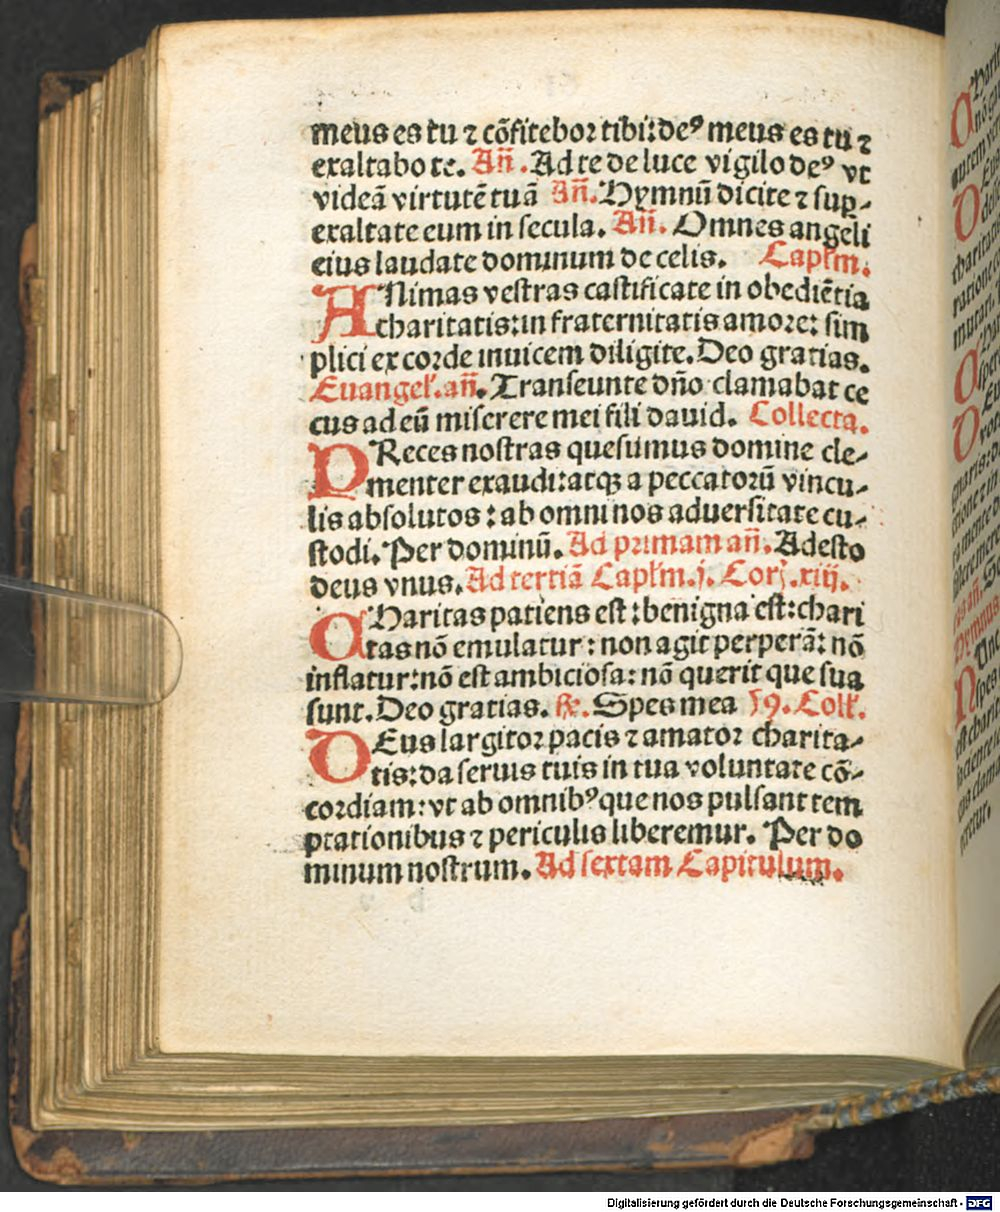 meus es tu ⁊ cõfitebor tibi: deꝰ meus es tu ⁊
exaltabo te. Añ. Ad te de luce vigilo deꝰ vt
videã virtutẽ tuã Añ. Hymnũ dicite ⁊ suꝑ-
exaltate eum in secula. Añ. Omnes angeli
eius laudate dominum de celis. Capl'm.
ANimas vestras castificate in obediẽtia
charitatis: in fraternitatis amore: sim
plici ex corde inuicem diligite. Deo gratias.
Euangel'. añ. Transeunte dño clamabat ce
cus ad eũ miserere mei fili dauid. Collecta.
PReces nostras quesumus domine cle-
menter exaudi: atqꝫ a peccatorũ vincu-
lis absolutos: ab omni nos aduersitate cu-
stodi. Per dominũ. Ad primam añ. Adesto
deus vnus. Ad tertiã Capl'm. j. Cor. xiij.
CHaritas patiens est: benigna est: chari
tas nõ emulatur: non agit perperã: nõ
inflatur: nõ est ambiciosa: nõ querit que sua
sunt. Deo gratias. ℟. Spes mea 59. Coll'.
DEus largitor pacis ⁊ amator charita-
tis: da seruis tuis in tua voluntate cõ-
cordiam: vt ab omnibꝰ que nos pulsant tem
ptationibus ⁊ periculis liberemur. Per do
minum nostrum. Ad sextam Capitulum.
Digitalisierung gefördert durch die Deutsche Forschungsgemeinschaft - DFG